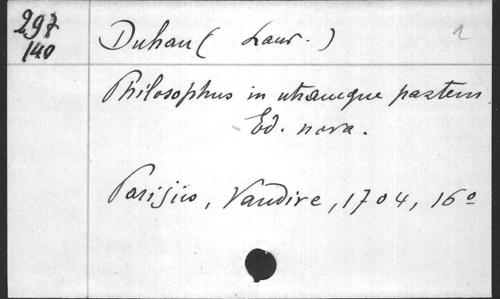 297
140
Duhan ( Laur. )
1
Philosophus in utramque partem
Ed. nova.
Parisiis, Vandive, 1704, 16º